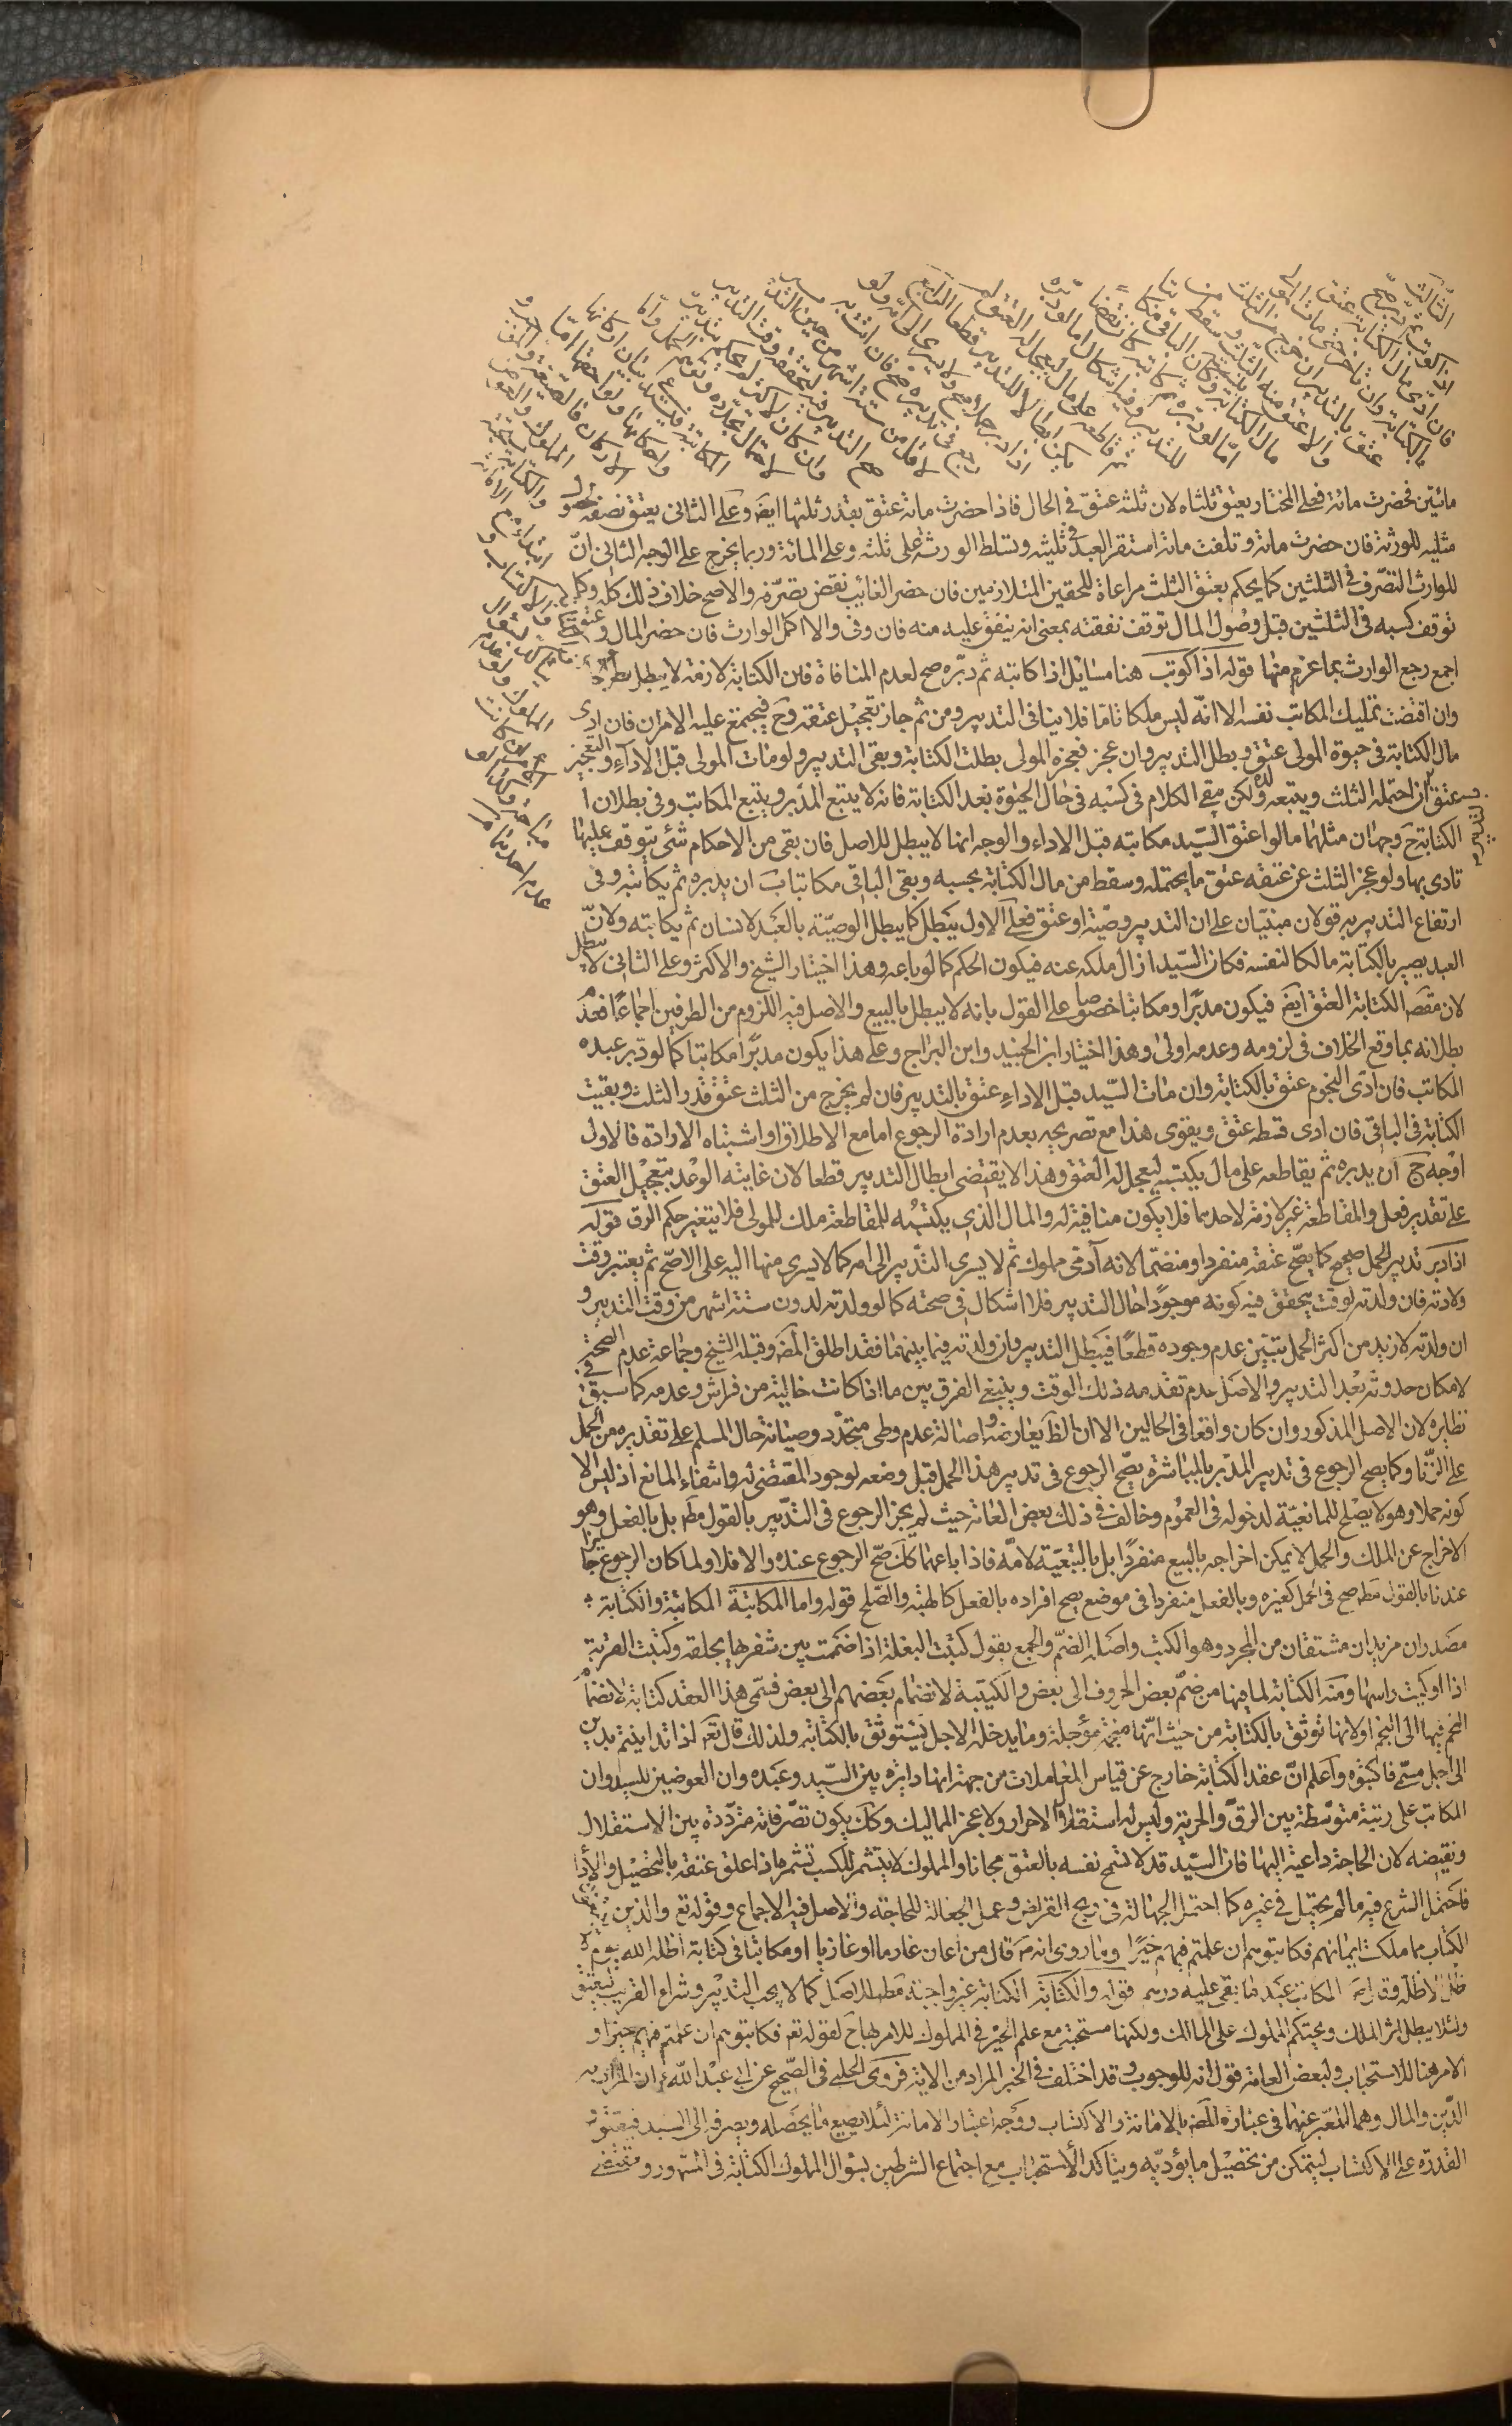 الثالث
اذا كوتب ثم دبر صح
فان ادى مال الكتابة عتق
بالكتابة وان تاخر حتى مات المولى
عتق بالتدبير ان خرج من الثلث
والا عتق منه الثلث وسقط من
مال الكتابة بنسبته وكان الباقي مكاتبا
اما لو دبره ثم كاتبه كان نقضا
للتدبير وفيه اشكال اما لو دبره
ثم قاطعه على مال ليعجل له العتق لم
يكن ابطالا للتدبير قطعا الرابع
اذا دبر حملا صح ولا يسري الى امه ولو
رجع في تدبيره صح فان اتت به
لاقل من ستة اشهر من حين التدبير
صح التدبير فيه لتحققه وقت التدبير
وان كان لاكثر لم يحكم بتدبيره
لاحتمال تجدده وتوهم الحمل واما
المكاتبة فتستدعي بيان اركانها
واحكامها ولواحقها اما
الاركان فالصيغة والموجب
المملوك والعوض
والكتابة مستحبة
ابتداء مع الامانة
والاكتساب و
تتأكد بسؤال
المملوك ولو عدم
الامران كانت
مباحة وكذا لو
عدم احدهما
مائتين فحضرت مائة فعلى المختار يعتق ثلثاه لان ثلثه عتق في الحال فاذا حضرت مائة عتق بقدر ثلثها ايضا وعلى الثاني يعتق نصفه لحصول
مثليه للورثة فان حضرت مائة وتلفت مائة استقر العبد في ثلثيه وتسلط الورثة على ثلثه وعلى المائة وربما يخرج على الوجه الثاني انّ
للوارث التصّرف في الثلثين كما يحكم بعتق الثلث مراعاة للحقين المتلازمين فان حضر الغائب نقض تصرّفه والاصح خلاف ذلك كله وكما
توقف كسبه في الثلثين قبل وصول المال توقف نفقته بمعنى انه ينفق عليه منه فان وفى والا اكمل الوارث فان حضر المال وعتق
اجمع رجع الوارث بما غرم منها قوله اذا كوتب هنا مسائل اذا كاتبه ثم دبّره صح لعدم المنافاة فان الكتابة لازمة لا يبطل بطروّه
وان اقتضت تمليك المكاتب نفسه الا انّه ليس ملكا تامّا فلا ينافي التدبير ومن ثم جاز تعجيل عتقه وح فيجتمع عليه الامران فان ادى
مال الكتابة في حيوة المولى عتق وبطل التدبير وان عجز فعجزه المولى بطلت الكتابة وبقي التدبير ولو مات المولى قبل الاداء والتعجيز
عتق ان احتمله الثلث ويتبعه ولده ولكن يبقى الكلام في كسبه في حال الحيوة بعد الكتابة فانه لا يتبع المدّبر ويتبع المكاتب وفي بطلان
بالتدبير
الكتابة ح وجهان مثلهما ما لو اعتق السّيد مكاتبه قبل الاداء والوجه انها لا يبطل للاصل فان بقي من الاحكام شئ يتوقف عليها
تادى بها ولو عجز الثلث عن عتقه عتق ما يحتمله وسقط من مال الكتابة بحسبه وبقي الباقي مكاتبا ب ان يدبره ثم يكاتبه وفي
ارتفاع التدبير به قولان مبنيّان على ان التدبير وصّية او عتق فعلى الاول يبطل كما يبطل الوصيّة بالعبد لانسان ثم يكاتبه ولانّ
العبد يصير بالكتابة مالكا لنفسه فكان السّيد ازال ملكه عنه فيكون الحكم كما لو باعه وهذا اختيار الشيخ والاكثر وعلى الثاني لا يبطل
لان مقصد الكتابة العتق ايضا فيكون مدبّرا ومكاتبا خصوصا على القول بانه لا يبطل بالبيع والاصل فيه اللزوم من الطرفين اجماعا فعدم
بطلانه بما وقع الخلاف في لزومه وعدمه اولى وهذا اختيار ابن الجنيد وابن البراج وعلى هذا يكون مدبّرا مكاتبا كما لو دبر عبده
المكاتب فان ادى النجوم عتق بالكتابة وان مات السّيد قبل الاداء عتق بالتدبير فان لم يخرج من الثلث عتق قدر الثلث وبقيت
الكتابة في الباقي فان ادى قسطه عتق ويقوى هذا مع تصريحه بعدم ارادة الرجوع اما مع الاطلاق او اشتباه الارادة فالاول
اوجه ج ان يدبره ثم يقاطعه على مال يكتسبه ليعجل له العتق وهذا لا يقتضي ابطال التدبير قطعا لان غايته الوعد بتعجيل العتق
على تقدير فعل والمقاطعة غير لازمة لاحدهما فلا يكون منافية له والمال الذي يكتسبه للمقاطعة ملك للمولى فلا يتغير حكم الرق قوله
اذا دبر تدبير الحمل صحيح كما يصّح عتقه منفردا ومنضمّا لانه آدمى مملوك ثم لا يسري التدبير الى امه كما لا يسري منها اليه على الاصّح ثم يعتبر وقت
ولادته فان ولدته لوقت يتحقق فيه كونه موجودًا حال التدبير فلا اشكال في صحته كما لو ولدته لدون ستة اشهر من وقت التدبير و
ان ولدته لازيد من اكثر الحمل تبيّن عدم وجوده قطعًا فيبطل التدبير وان ولدته فيما بينهما فقد اطلق المصنف وقبله الشيخ وجماعة عدم الصحة
لامكان حدوثه بعد التدبير والاصل عدم تقدمه ذلك الوقت وينبغي الفرق بين ما اذا كانت خالية من فراش وعدمه كما سبق في
نظايره لان الاصل المذكور وان كان واقعا في الحالين الا ان الظ يعارضه واصالة عدم وطى متجدّد وصيانة حال المسلم على تقديره من الحمل
على الزّنا وكما يصح الرجوع في تدبير المدّبر بالمباشرة يصّح الرجوع في تدبير هذا الحمل قبل وضعه لوجود المقتضى له وانتفاء المانع اذ ليس الا
كونه حملا وهو لا يصلح للمانعيّة لدخوله في العموم وخالف في ذلك بعض العامة حيث لم يجز الرجوع في التّدبير بالقول مطلقا بل بالفعل وهو
الاخراج عن الملك والحمل لا يمكن اخراجه بالبيع منفردًا بل بالتبعّية لامّه فاذا باعهما كك صّح الرجوع عنده والا فلا ولما كان الرجوع جائزا
عندنا بالقول مطلقا صح في الحمل كغيره وبالفعل منفردا في موضع يصح افراده بالفعل كالهبة والصّلح قوله واما المكاتبة المكاتبة والكتابة
مصدران مزيدان مشتقان من المجرد وهو الكتب واصله الضمّ والجمع يقول كتبت البغلة اذا ضممت بين شفريها بحلقه وكتبت القربة
اذا اوكيت راسها ومنه الكتابة لما فيها من ضمّ بعض الحروف الى بعض والكتيبة لانضمام بعضهم الى بعض فسمّى هذا العقد كتابة لانضمام
النجم فيها الى النجم او لانها توثق بالكتابة من حيث انّها منجمة مؤجلة وما يدخله الاجل يستوثق بالكتابة ولذلك قال تع اذا تداينتم بدين
الى اجل مسمّى فاكتبوه واعلم انّ عقد الكتابة خارج عن قياس المعاملات من جهة انها دايرة بين السّيد وعبده وان العوضين للسيد وان
المكاتب على رتبة متوّسطة بين الرقّ والحرية وليس له استقلال الاحرار ولا عجز المماليك وكك يكون تصّرفاته متردّدة بين الاستقلال
ونقيضه لان الحاجة داعية اليها فان السّيد قد لا تسمح نفسه بالعتق مجانا والمملوك لا يتشمر للكسب تشمره اذا علق عتقه بالتحصيل والاداء
فاحتمل الشرع فيه ما لم يحتمل في غيره كما احتمل الجهالة في ربح القراض وعمل الجعالة للحاجة والاصل فيه الاجماع وقوله تع والذين يبتغون
الكتاب مما ملكت ايمانهم فكاتبوهم ان علمتم فيهم خيرًا وما روى انه ص قال من اعان غارما او غازيا او مكاتبا في كتابة اظله الله يوم لا
ظل الا ظله وقال ص المكاتب عبد ما بقي عليه درهم قوله والكتابة الكتابة غير واجبة مطلقا للاصل كما لا يجب التدبير وشراء القريب ليعتق
ولئلا يبطل اثر الملك ويحتكم المملوك على المالك ولكنها مستحبة مع علم الخير في المملوك للامر بها ح لقوله تع فكاتبوهم ان علمتم فيهم خيرا و
الامر هنا للاستحباب ولبعض العامة قول انه للوجوب وقد اختلف في الخير المراد من الاية فروى الحلبي في الصّحيح عن ابي عبد الله ع ان المراد به
الدّين والمال وهما المعّبر عنهما في عبارة المصنف بالامانة والاكتساب ووجه اعتبار الامانة لئلا يضيع ما يحصله ويصرفه الى السيد فيعتق و
القدرة على الاكتساب ليتمكن من تحصيل ما يؤدّيه ويتاكد الاستحباب مع اجتماع الشرطين بسؤال المملوك الكتابة في المشهور ومقتضى